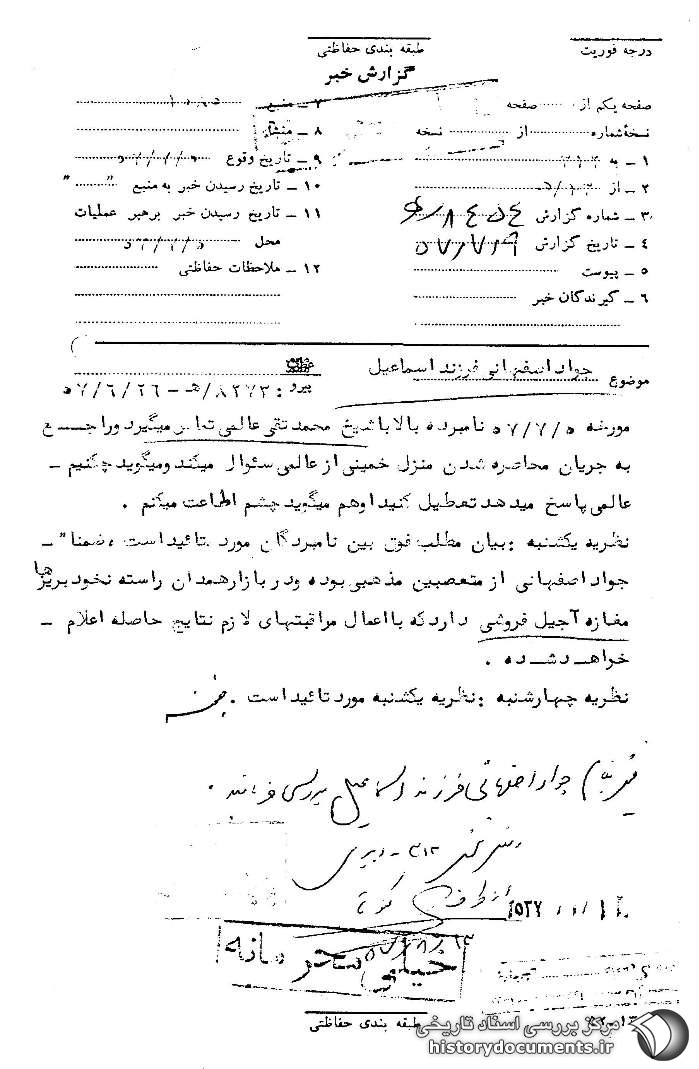 درجه فوریت
طبقه بندی حفاظتی
گزارش خبر
صفحه یکم از صفحه
نسخه شماره از نسخه
۱ ـ به ۳۱۲
۲ ـ از
۳ ـ شماره گزارش
۴ ـ تاریخ گزارش ۵۷/۷/۱۹
۵ ـ پیوست
۶ ـ گیرندگان خبر
۷ ـ منبع
۸ ـ منشاء
۹ ـ تاریخ وقوع ۵۷/۷/۵
۱۰ ـ تاریخ رسیدن خبر به منبع "
۱۱ ـ تاریخ رسیدن خبر برهبر عملیات
محل ۵۷/۷/۵
۱۲ ـ ملاحظات حفاظتی
موضوع جواد اصفهانی فرزند اسماعیل
پیرو : ۸۲۷۳/هـ ـ ۵۷/۶/۲۶
مورخه ۵۷/۷/۵ نامبرده بالا با شیخ محمد تقی عالمی تماس میگیرد و راجع
به جریان محاصره شدن منزل خمینی از عالمی سئوال میکند و میگوید چکنیم ـ
عالمی پاسخ میدهد تعطیل کنید او هم میگوید چشم اطاعت میکنم .
نظریه یکشنبه : بیان مطلب فوق بین نامبردگان مورد تائید است ، ضمنا" ـ
جواد اصفهانی از متعصبین مذهبی بوده و در بازار همدان راسته نخود بریزها
مغازه آجیل فروشی دارد که با اعمال مراقبتهای لازم نتایج حاصله اعلام ـ
خواهد شد .
نظریه چهارشنبه : نظریه یکشنبه مورد تائید است .
جواد اصفهانی فرزند اسماعیل بررسی فرمایند .
خیلی محرمانه
طبقه بندی حفاظتی
مرکز بررسی اسناد تاریخی
historydocuments.ir